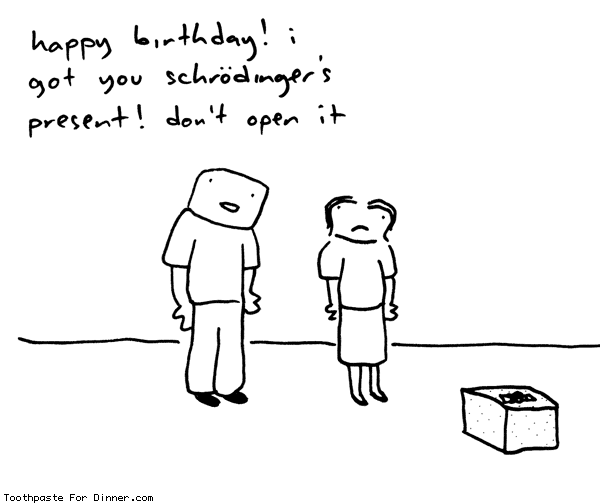 happy birthday! i
got you schrödinger's
present! don't open it
Toothpaste For Dinner.com